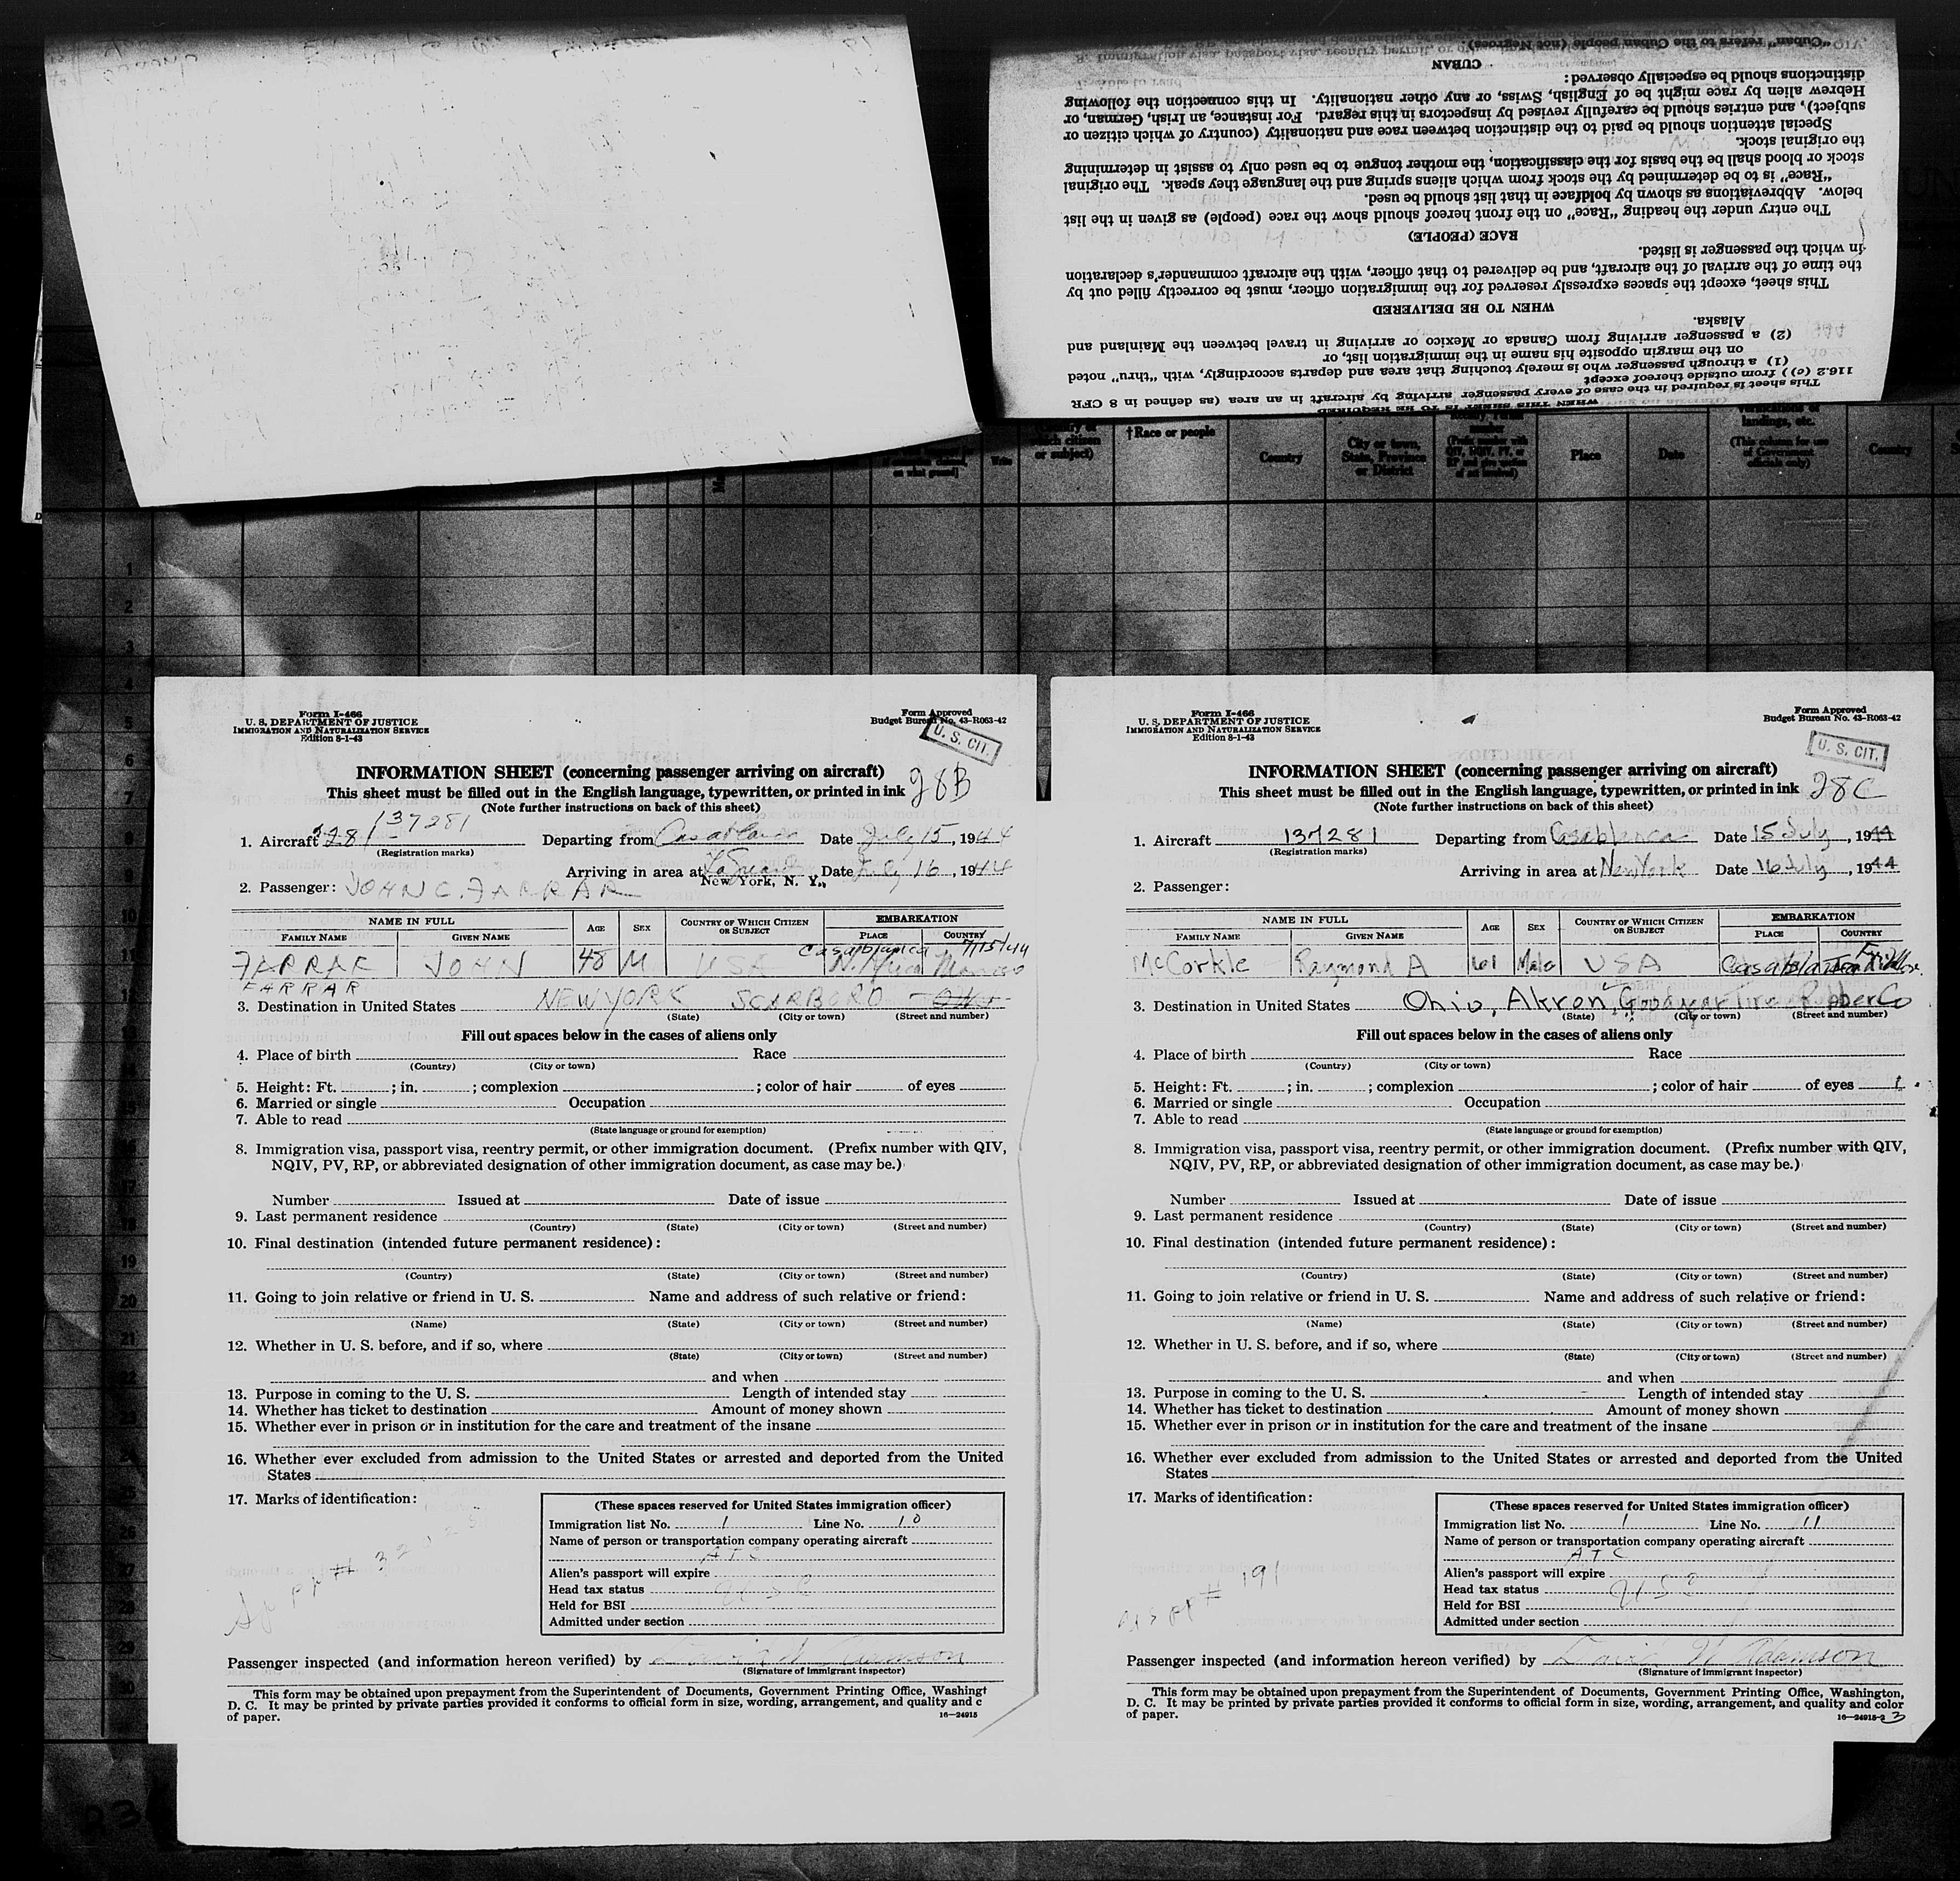 "Cuban" refers to the Cuban people (not Negroes)
CUBAN
distinctions should be especially observed:
Hebrew alien by race might be of English, Swiss, or any other nationality. In this connection the following
subject), and entries should be carefully revised by inspectors in this regard. For instance, an Irish, German, or
Special attention should be paid to the distinction between race and nationality (country of which citizen or
the original stock.
stock or blood shall be the basis for the classification, the mother tongue to be used only to assist in determining
"Race" is to be determined by the stock from which aliens spring and the language they speak. The original
below. Abbreviations as shown by boldface in that list should be used.
The entry under the heading "Race" on the front hereof should show the race (people) as given in the list
RACE (PEOPLE)
in which the passenger is listed.
the time of the arrival of the aircraft, and be delivered to that officer, with the aircraft commander's declaration
This sheet, except the spaces expressly reserved for the immigration officer, must be correctly filled out by
WHEN TO BE DELIVERED
Alaska.
(2) a passenger arriving from Canada or Mexico or arriving in travel between the Mainland and
on the margin opposite his name in the immigration list, or
(1) a through passenger who is merely touching that area and departs accordingly, with "thru" noted
116.2 (c)) from outside thereof except
This sheet is required in the case of every passenger arriving by aircraft in an area (as defined in 8 CFR
WHEN THIS SHEET IS TO BE REQUIRED
which citizen
or subject)
†Race or people
Country
City or town,
State, Province
or District
Place
Date
landings, etc.
(This column for use
of Government
officials only)
Country
1
2
3
4
5
6
7
8
9
10
11
Form I-466
U. S. DEPARTMENT OF JUSTICE
IMMIGRATION AND NATURALIZATION SERVICE
Edition 8-1-43
Form Approved
Budget Bureau No. 43-R063-42
U. S. CIT.
INFORMATION SHEET (concerning passenger arriving on aircraft)
28B
This sheet must be filled out in the English language, typewritten, or printed in ink
(Note further instructions on back of this sheet)
1. Aircraft 137281 Departing from Casablanca Date July 15, 1944
(Registration marks)
Arriving in area at LaGuardia Date July 16, 1944
New York, N. Y.,
2. Passenger: JOHN C. FARRAR
NAME IN FULL AGE SEX COUNTRY OF WHICH CITIZEN OR SUBJECT EMBARKATION
FAMILY NAME GIVEN NAME PLACE COUNTRY
Casablanca 7/15/44
FARRAR JOHN 48 M USA N. Africa Morocco
FARRAR
3. Destination in United States NEW YORK SCARBORO
(State) (City or town) (Street and number)
Fill out spaces below in the cases of aliens only
4. Place of birth Race
(Country) (City or town)
5. Height: Ft. ; in. ; complexion ; color of hair of eyes
6. Married or single Occupation
7. Able to read
(State language or ground for exemption)
8. Immigration visa, passport visa, reentry permit, or other immigration document. (Prefix number with QIV,
NQIV, PV, RP, or abbreviated designation of other immigration document, as case may be.)
Number Issued at Date of issue
9. Last permanent residence
(Country) (State) (City or town) (Street and number)
10. Final destination (intended future permanent residence):
(Country) (State) (City or town) (Street and number)
11. Going to join relative or friend in U. S. Name and address of such relative or friend:
(Name) (State) (City or town) (Street and number)
12. Whether in U. S. before, and if so, where
(State) (City or town) (Street and number)
and when
13. Purpose in coming to the U. S. Length of intended stay
14. Whether has ticket to destination Amount of money shown
15. Whether ever in prison or in institution for the care and treatment of the insane
16. Whether ever excluded from admission to the United States or arrested and deported from the United
States
17. Marks of identification:
(These spaces reserved for United States immigration officer)
Immigration list No. 1 Line No. 10
Name of person or transportation company operating aircraft
ATC
Alien's passport will expire
Head tax status USC
Held for BSI
Admitted under section
Passenger inspected (and information hereon verified) by David W Adamson
(Signature of immigrant inspector)
This form may be obtained upon prepayment from the Superintendent of Documents, Government Printing Office, Washingt
D. C. It may be printed by private parties provided it conforms to official form in size, wording, arrangement, and quality and c
of paper.
16—24915
Form I-466
U. S. DEPARTMENT OF JUSTICE
IMMIGRATION AND NATURALIZATION SERVICE
Edition 8-1-43
Form Approved
Budget Bureau No. 43-R063-42
U. S. CIT.
INFORMATION SHEET (concerning passenger arriving on aircraft)
28C
This sheet must be filled out in the English language, typewritten, or printed in ink
(Note further instructions on back of this sheet)
1. Aircraft 137281 Departing from Casablanca Date 15 July, 1944
(Registration marks)
Arriving in area at New York Date 16 July, 1944
2. Passenger:
NAME IN FULL AGE SEX COUNTRY OF WHICH CITIZEN OR SUBJECT EMBARKATION
FAMILY NAME GIVEN NAME PLACE COUNTRY
McCorkle Raymond A 61 Male USA Casablanca
3. Destination in United States Ohio, Akron, Goodyear Tire Rubber Co
(State) (City or town) (Street and number)
Fill out spaces below in the cases of aliens only
4. Place of birth Race
(Country) (City or town)
5. Height: Ft. ; in. ; complexion ; color of hair of eyes
6. Married or single Occupation
7. Able to read
(State language or ground for exemption)
8. Immigration visa, passport visa, reentry permit, or other immigration document. (Prefix number with QIV,
NQIV, PV, RP, or abbreviated designation of other immigration document, as case may be.)
Number Issued at Date of issue
9. Last permanent residence
(Country) (State) (City or town) (Street and number)
10. Final destination (intended future permanent residence):
(Country) (State) (City or town) (Street and number)
11. Going to join relative or friend in U. S. Name and address of such relative or friend:
(Name) (State) (City or town) (Street and number)
12. Whether in U. S. before, and if so, where
(State) (City or town) (Street and number)
and when
13. Purpose in coming to the U. S. Length of intended stay
14. Whether has ticket to destination Amount of money shown
15. Whether ever in prison or in institution for the care and treatment of the insane
16. Whether ever excluded from admission to the United States or arrested and deported from the United
States
17. Marks of identification:
# 191
(These spaces reserved for United States immigration officer)
Immigration list No. 1 Line No. 11
Name of person or transportation company operating aircraft
ATC
Alien's passport will expire
Head tax status USC
Held for BSI
Admitted under section
Passenger inspected (and information hereon verified) by David W Adamson
(Signature of immigrant inspector)
This form may be obtained upon prepayment from the Superintendent of Documents, Government Printing Office, Washington,
D. C. It may be printed by private parties provided it conforms to official form in size, wording, arrangement, and quality and color
of paper.
16—24915-2 3